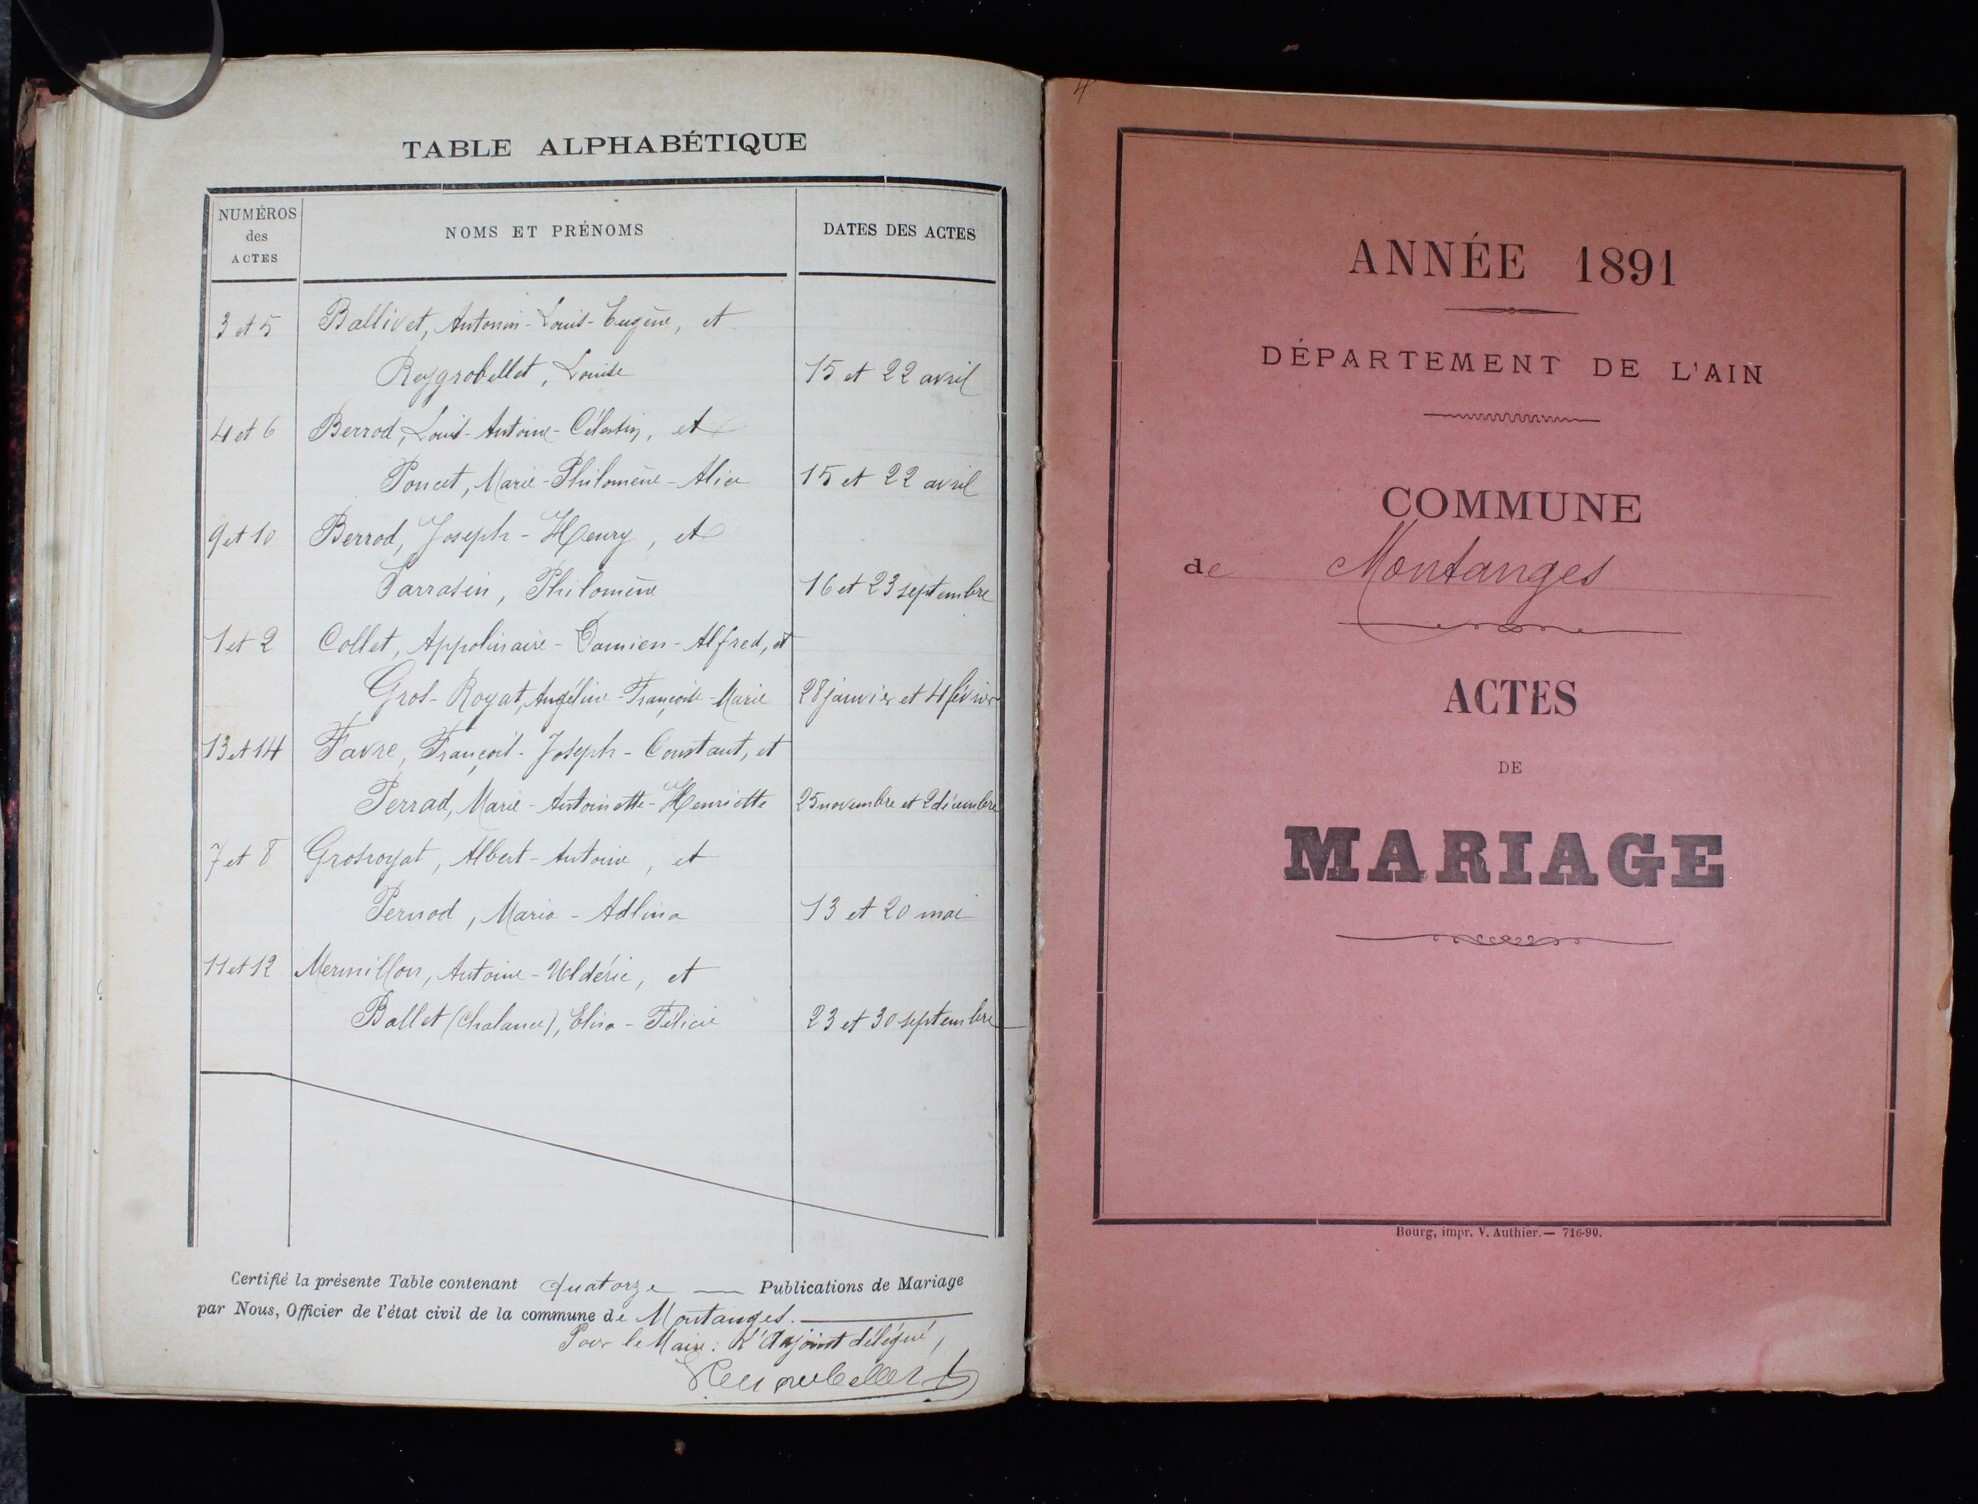 TABLE ALPHABÉTIQUE
NUMÉROS
des
ACTES
NOMS ET PRÉNOMS
DATES DES ACTES
3 et 5 Ballivet, Antonin-Louis-Eugène, et
Reygrobellet, Louise 15 et 22 avril
4 et 6 Berrod, Louis-Antoine-Célestin, et
Poncet, Marie-Philomène-Alice 15 et 22 avril
9 et 10 Berrod, Joseph-Henry, et
Sarrasin, Philomène 16 et 23 septembre
1 et 2 Collet, Appolinaire-Damien-Alfred, et
Gros-Royat, Angéline-Françoise-Marie 28 janvier et 4 février
13 et 14 Favre, François-Joseph-Constant, et
Perrad, Marie-Antoinette-Henriette 25 novembre et 2 décembre
7 et 8 Grosroyat, Albert-Antoine, et
Pernod, Maria-Adlina 13 et 20 mai
11 et 12 Mermillon, Antoine-Uldéric, et
Ballet (Chalance), Elisa-Félicie 23 et 30 septembre
Certifié la présente Table contenant quatorze — Publications de Mariage
par Nous, Officier de l'état civil de la commune de Montanges.
Pour le Maire: L'Adjoint délégué,
4
ANNÉE 1891
DÉPARTEMENT DE L'AIN
COMMUNE
de Montanges
ACTES
DE
MARIAGE
Bourg, impr. V. Authier. — 716-90.